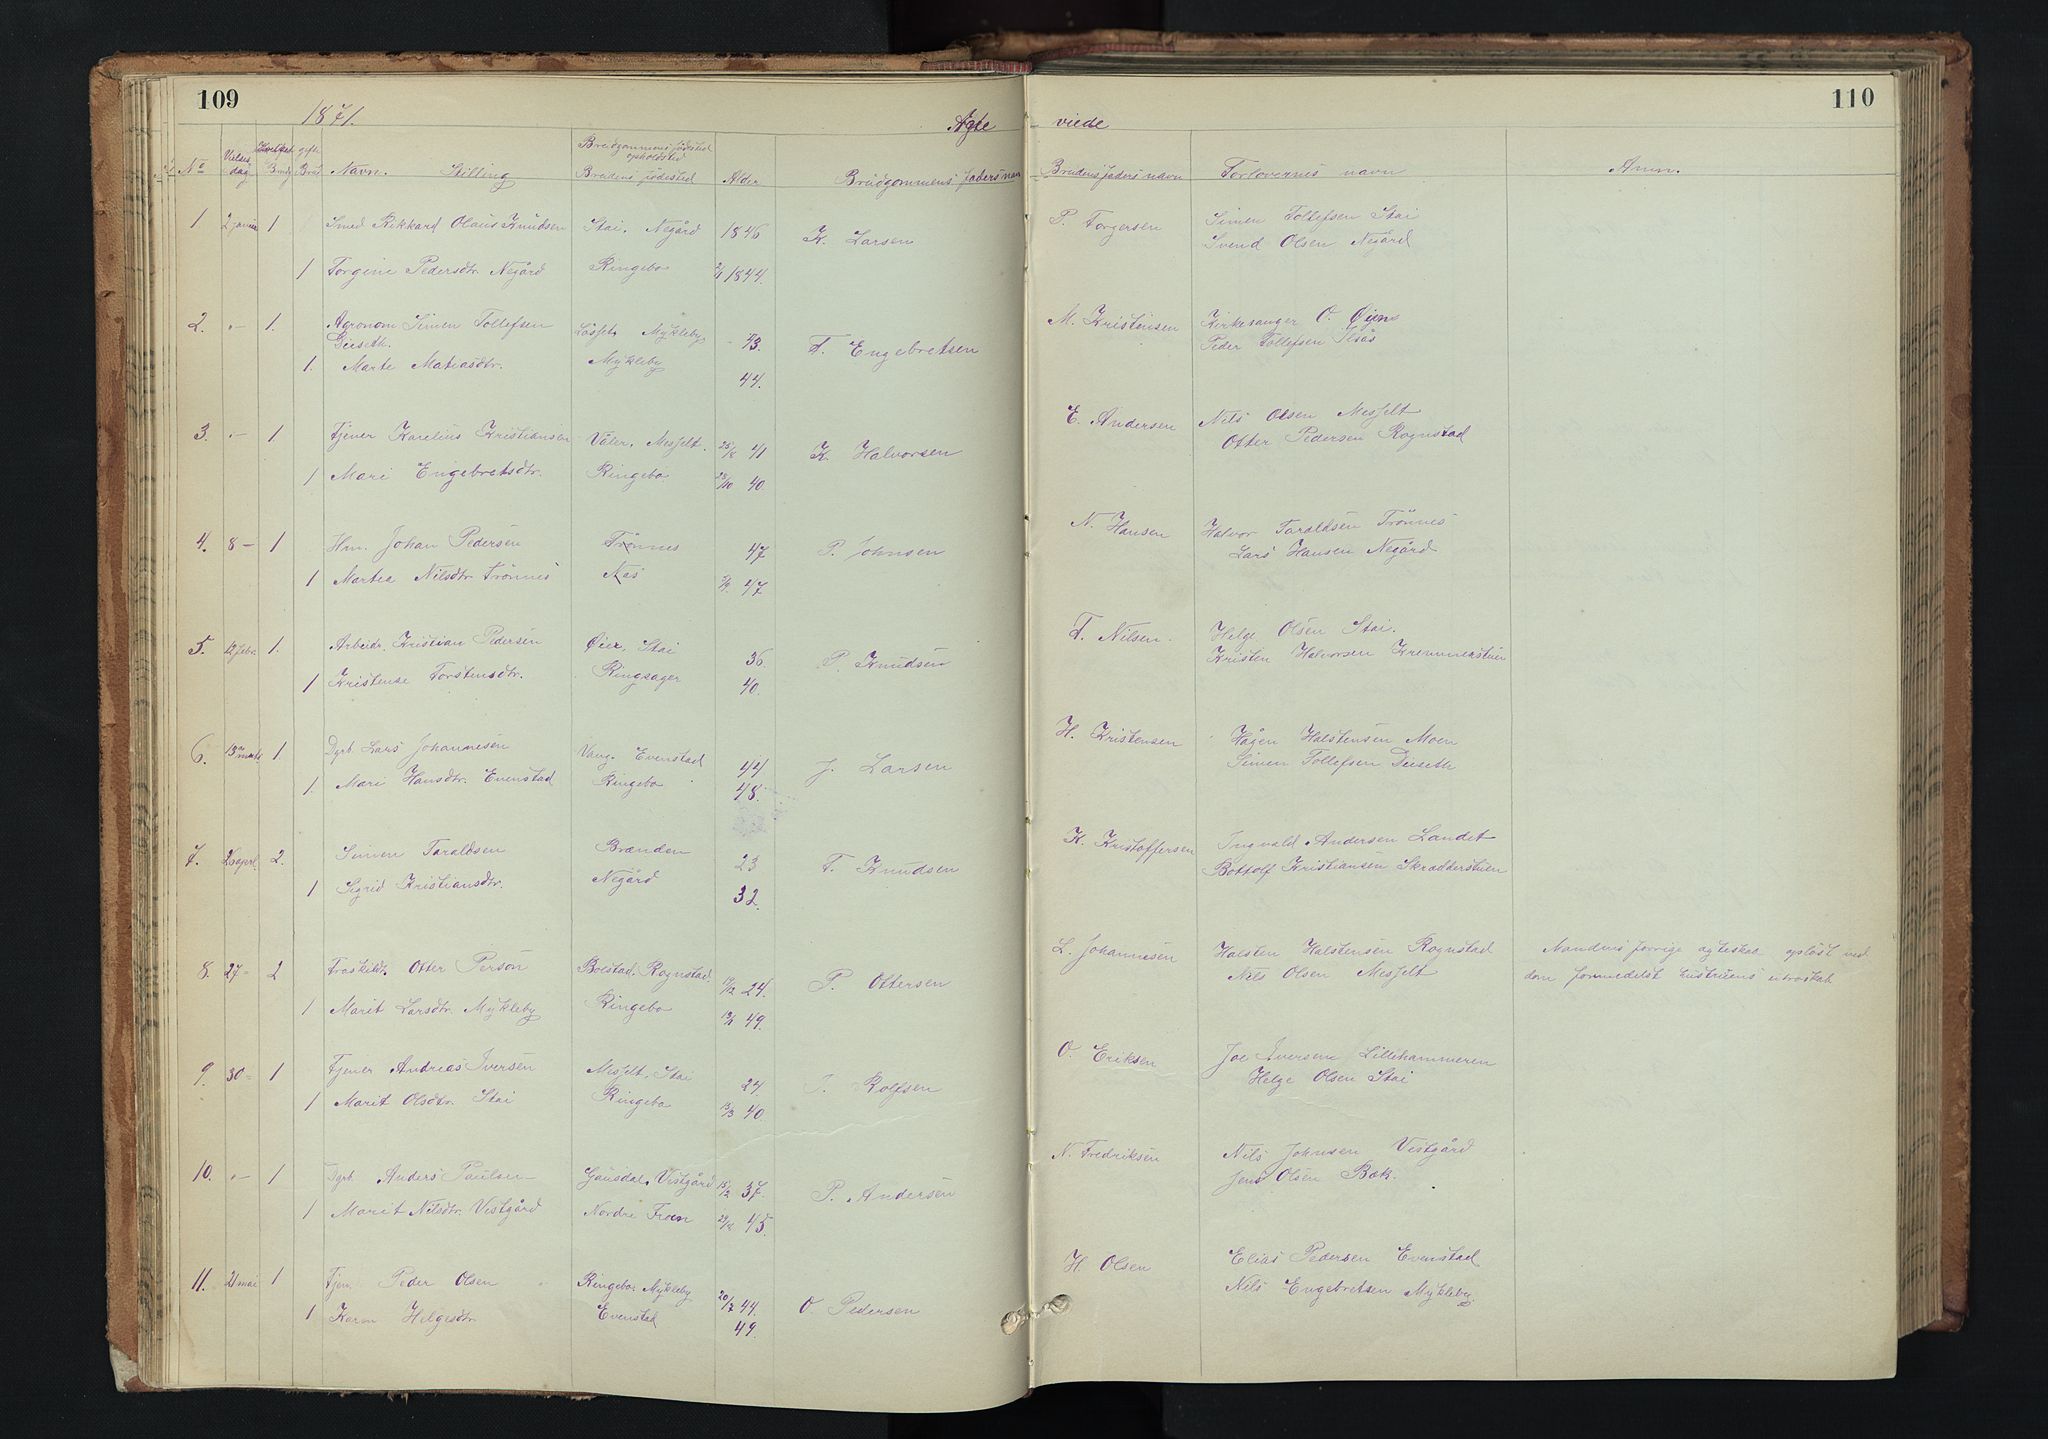 109
1871.
Ægte
viede
110
No Vielses dag Hvilket gifte Brudg Brud
Navn. Stilling
Brudgommens fødested opholdsted
Brudens fødested
Alder
Brudgommens faders navn
Brudens faders navn
Forlovernes navn
Anm.
1 2 januar 1 Smed Rikkard Olaus Knudsen Stai, Negård 1846 K. Larsen P. Torgersen Simen Tollefsen Stai
Svend Olsen Negård
1 Torgine Pedersdtr. Negård Ringebo 2/1 1844.
2. -"- 1. Agronom Simen Tollefsen Løsset, Mykleby - 43. T. Engebretsen M. Kristensen Kirkesanger O. Øien
Gieseth. Peder Tollefsen
1. Marte Matiasdtr. Mykleby 44.
3. -"- 1 Tjener Karelius Kristiansen Våler, Messelt. 25/8 41 K. Halvorsen E. Andersen Nils Olsen Messelt
Otter Pedersen Rognstad
1 Mari Engebretsdtr. Ringebo 23/10 40.
4. 8 - 1 Hm. Johan Pedersen Trønnes 47 P. Johnsen N. Hansen Halvor Taraldsen Trønnes
Lars Hansen Negård
1 Martea Nilsdtr. Trønnes Næs 47
5. 12 febr. 1. Arbeidr. Kristian Pedersen Øier, Stai 36. P. Knudsen T. Nilsen. Helge Olsen Stai.
Kristen Halvorsen Kremmerstuen
1 Kristense Torstensdtr. Ringsager 40.
6. 13 marts 1. Dgrb. Lars Johannesen Vang. Evenstad 44 J. Larsen H. Kristensen Hågen Halstensen Moen
Simen Tollefsen Dieseth
1. Mari Hansdtr. Evenstad Ringebo 48.
7. 26 april 2. Simen Taraldsen Brænden 23 T. Knudsen K. Kristoffersen Ingvald Andersen Landet
Bottolf Kristiansen Skrædderstuen
1 Sigrid Kristiansdtr. Negård 32.
8. 27 - 2 Fraskildt. Otter Person Bolstad, Rognstad. 17/12 24. P. Ottersen L. Johannesen Halsten Halstensen Rognstad Mandens forrige ægteskab opløst ved
Nils Olsen Messelt dom formedelst hustruens utroskab
1 Marit Larsdtr. Mykleby Ringebo 49.
9. 30 - 1 Tjener Andreas Iversen Messelt, Stai 24. I. Rolfsen O. Eriksen Joe Iversen Lillehammeren
Helge Olsen Stai
1 Marit Olsdtr. Stai Ringebo 13/3 40
10. -"- 1 Dgrb. Anders Paulsen Gausdal, Vistgård 15/2 37. P. Andersen N. Fredriksen Nils Johnsen Vistgård
Jens Olsen Bæk.
1 Marit Nilsdtr. Vistgård Nordre Fron 45.
11. 21 mai 1 Tjen Peder Olsen Ringebo. Mykleby 20/7 44. O. Pedersen H. Olsen Elias Pedersen Evenstad
Nils Engebretsen Mykleby.
1 Karen Helgesdtr. Evenstad 49.